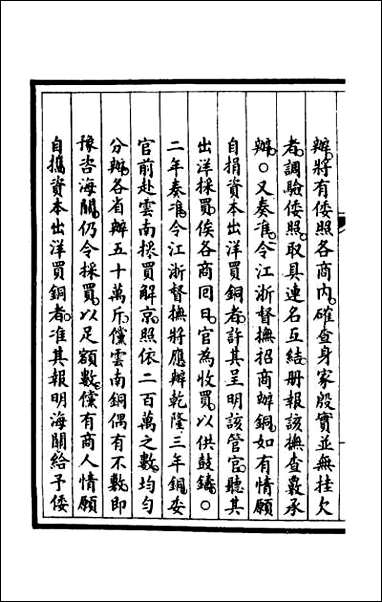 辦。將有倭照各商內。確查身家殷實並無挂欠
者。調驗倭照。取具連名互結。册報該撫查覈承
辦。○又奏准。令江浙督撫招商辦銅。如有情願
自捐資本出洋買銅者。許其呈明該管官。聽其
出洋採買。俟各商回日。官為收買。以供鼓鑄。○
二年奏准。令江浙督撫將應辦乾隆三年銅。委
官前赴雲南採買解京。照依二百萬之數。均勻
分辦。各省辦五十萬斤。儻雲南銅偶有不敷。即
豫咨海關。仍令採買。以足額數。儻有商人情願
自攜資本出洋買銅者。准其報明海關。給予倭